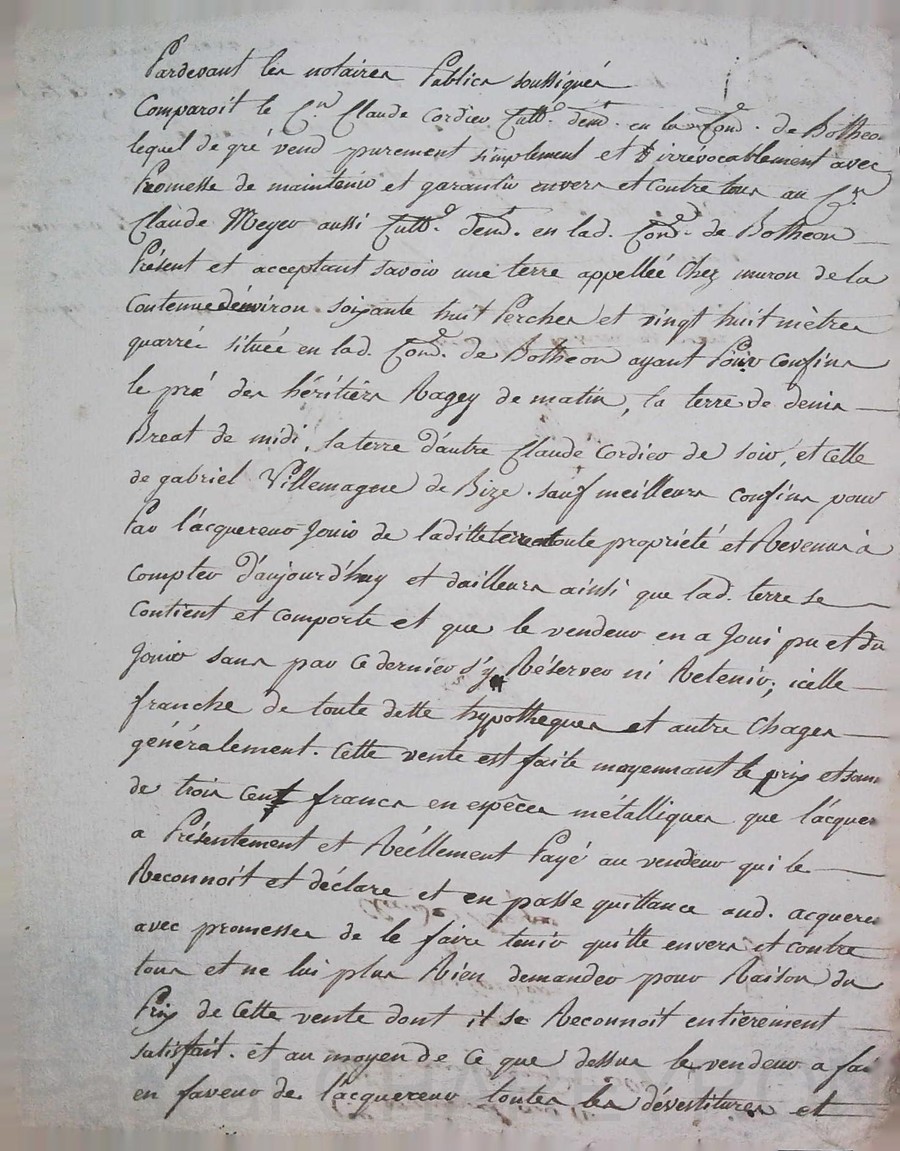 Pardevant les notaires Publics soussignés
Comparoit le C.en Claude Cordier Cult.r dem.t en la Com.e de Botheo
lequel de gré vend purement simplement et irrévocablement avec
Promesse de maintenir et garantir envers et contre tous au C.en
Claude Meyer aussi Cult.r dem.t en lad. Com.e de Botheon
Présent et acceptant savoir une terre appellée Chez muron de la
Contenue d'environ soixante huit Perches et vingt huit mètres
quarrés située en lad. Com.e de Botheon ayant Pour confins
le pré des héritiers Ragey de matin, la terre de denis
Breat de midi, la terre d'autre Claude Cordier de soir, et celle
de gabriel Villemagne de Bize. sauf meilleurs confins pour
Par l'acquereur Jouir de laditte terre toute propriété et Revenus à
compter d'aujourd'huy et dailleurs ainsi que lad. terre se
Contient et comporte et que le vendeur en a Joui pu et du
Jouir sans par ce dernier s'y Réserver ni Retenir; icelle
franche de toute dette hypotheques et autre Chages
généralement. Cette vente est faite moyennant le prix et som
de trois Cent francs en espêces métalliques que l'acque
a Présentement et Réellement Payé au vendeur qui le
Reconnoit et déclare et en passe quittance aud. acquere
avec promesse de le faire tenir quitte envers et contre
tous et ne lui plus Rien demander pour Raison du
Prix de Cette vente dont il se Reconnoit entièrement
satisfait. et au moyen de Ce que dessus le vendeur a fai
en faveur de l'acquereur toutes les dévestitures et